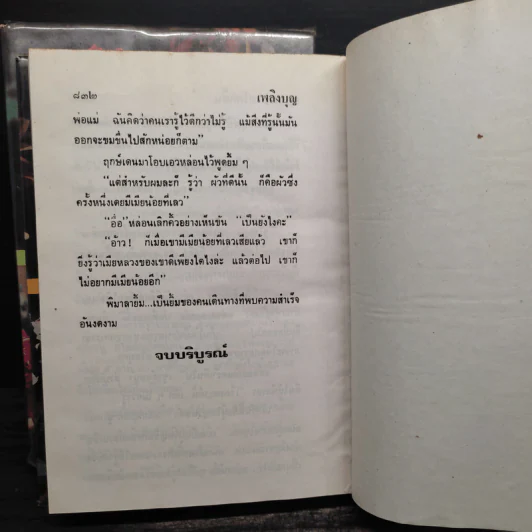 ๘๓๒ เพลิงบุญ
พ่อแม่ ฉันคิดว่าคนเรารู้ไว้ดีกว่าไม่รู้ แม้สิ่งที่รู้นั้นมัน
ออกจะขมขื่นไปสักหน่อยก็ตาม"
ฤกษ์เดนมาโอบเอวหล่อนไว้พูดยิ้ม ๆ
"แต่สำหรับผมละก็ รู้ว่า ผัวที่ดีนั้น ก็คือผัวซึ่ง
ครั้งหนึ่งเคยมีเมียน้อยที่เลว"
"อื้อ" หล่อนเลิกคิ้วอย่างเห็นขัน "เป็นยังไงคะ"
"อ้าว ! ก็เมื่อเขามีเมียน้อยที่เลวเสียแล้ว เขาก็
ยิ่งรู้ว่าเมียหลวงของเขาดีเพียงใดไงล่ะ แล้วต่อไป เขาก็
ไม่อยากมีเมียน้อยอีก"
พิมาลายิ้ม...เป็นยิ้มของคนเดินทางที่พบความสำเร็จ
อันงดงาม
จบบริบูรณ์